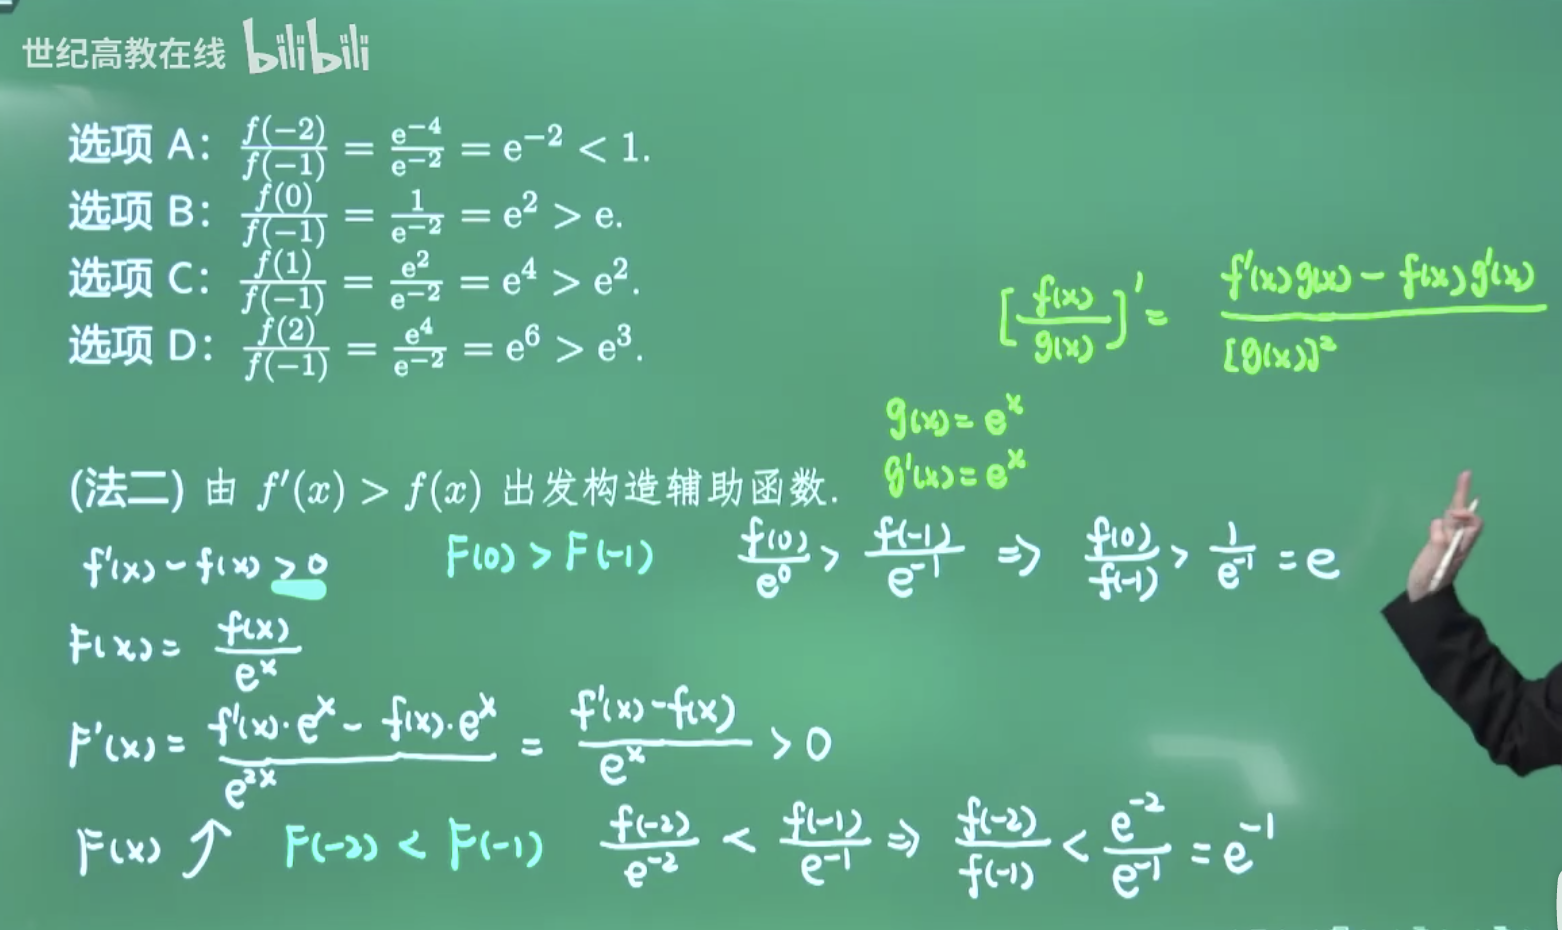 世纪高教在线 bilibili
选项 A: f(-2)/f(-1) = e^{-4}/e^{-2} = e^{-2} < 1.
选项 B: f(0)/f(-1) = 1/e^{-2} = e^2 > e.
选项 C: f(1)/f(-1) = e^2/e^{-2} = e^4 > e^2.
选项 D: f(2)/f(-1) = e^4/e^{-2} = e^6 > e^3.
[f(x)/g(x)]' = (f'(x)g(x) - f(x)g'(x))/[g(x)]^2
g(x) = e^x
g'(x) = e^x
(法二) 由 f'(x) > f(x) 出发构造辅助函数.
f'(x) - f(x) > 0
F(0) > F(-1) f(0)/e^0 > f(-1)/e^{-1} ⇒ f(0)/f(-1) > 1/e^{-1} = e
F(x) = f(x)/e^x
F'(x) = (f'(x)·e^x - f(x)·e^x)/e^{2x} = (f'(x) - f(x))/e^x > 0
F(x) ↗ F(-2) < F(-1) f(-2)/e^{-2} < f(-1)/e^{-1} ⇒ f(-2)/f(-1) < e^{-2}/e^{-1} = e^{-1}